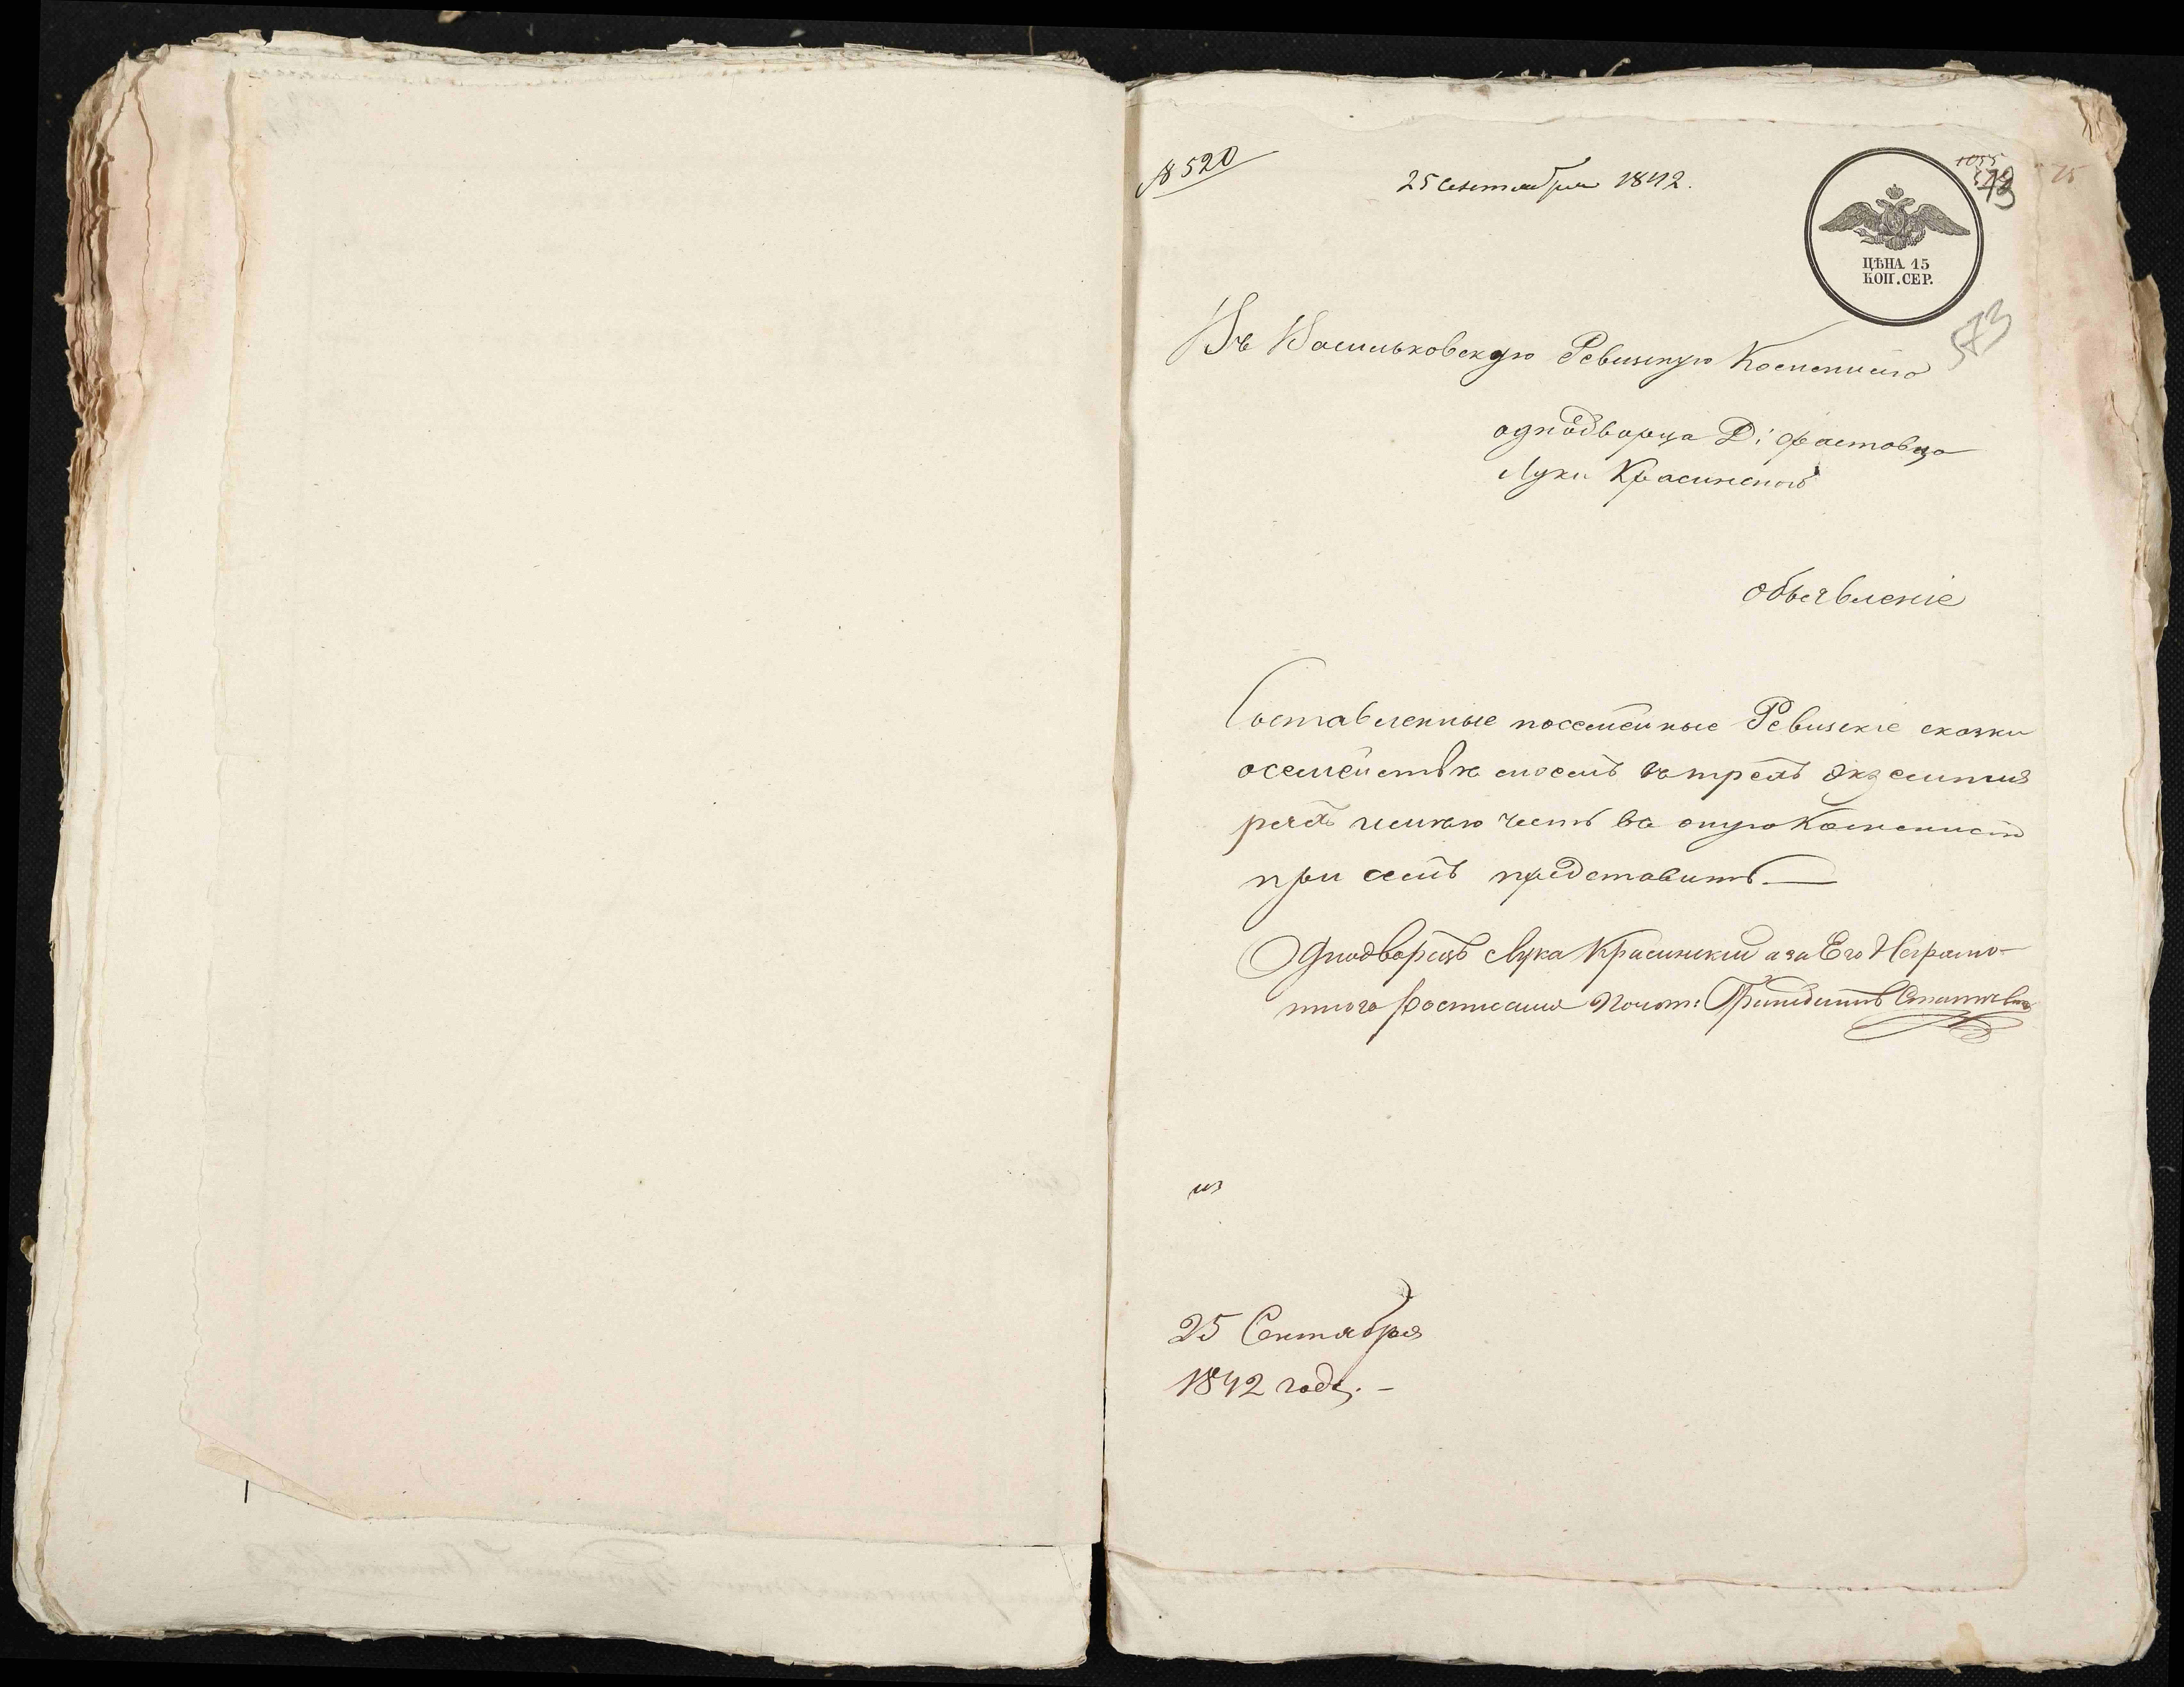 № 520
25 Сентября 1842.
1055
573
75
ЦѢНА 15
КОП. СЕР.
573
Въ Васильковскую Ревизкую Комисию
однодворца Д: Фастовца
Луки Красинского
объявленіе
Составленные посемейные Ревизскіе сказки
осемействѣ моемъ въ трехъ экземпля
рахъ имѣю честь въ оную Комисию
при семъ представить
Однодворецъ Лука Красинский а за Его Неграмо-
тного Росписался
25 Сентября
1842 года. -